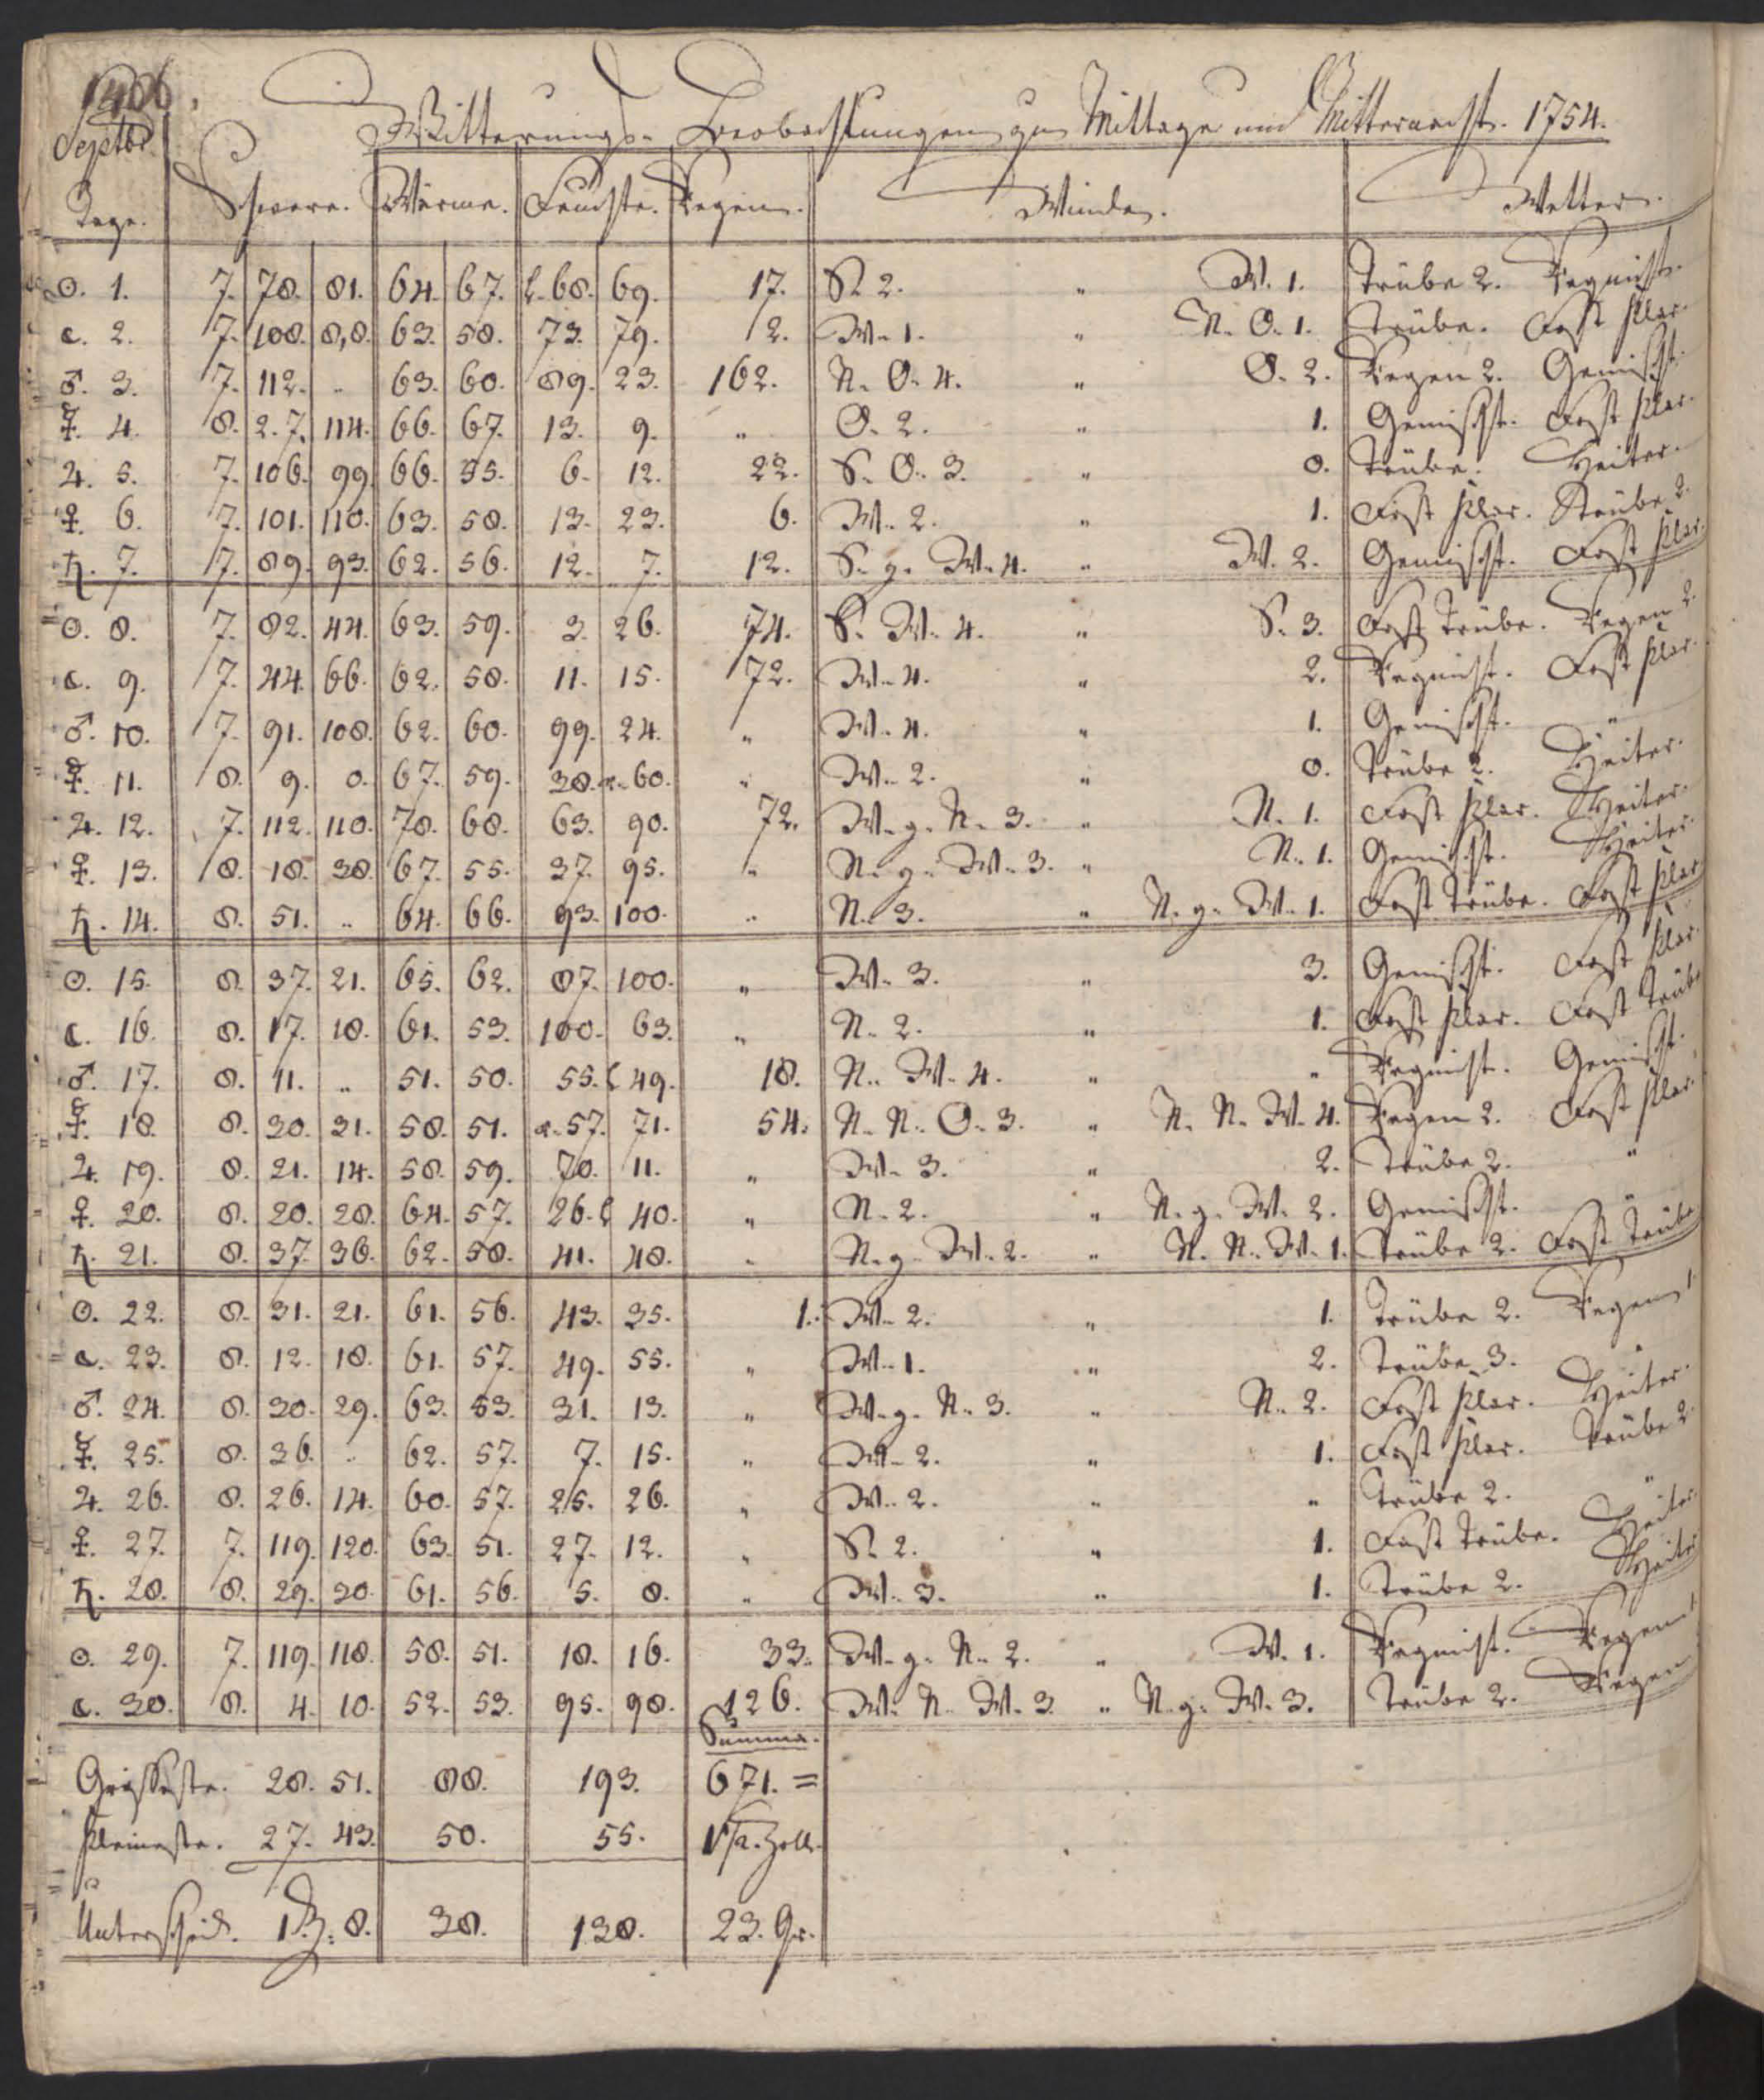 1406.
Septbr. Witterungs- Beobachtungen zu Mittage und Mitternacht. 1754.
Tage. Schwere. Wärme. Feuchte. Regen. Winde. Wetter.
☉. 1. 7. 78. 81. 64. 67. l. 68. 69. 17. S. 2. " W. 1. Trübe 2. Regnicht.
☾. 2. 7. 108. 8,8. 63. 58. 73. 79. 2. W. 1. " N. O. 1. Trübe. Fast klar.
♂. 3. 7. 112. .. 63. 60. 89. 23. 162. N. O. 4. " O. 2. Regen 2. Gemischt.
☿. 4. 8. 2. 7. 114. 66. 67. 13. 9. " O. 2. " 1. Gemischt. Fast klar.
♃. 5. 7. 106. 99. 66. 55. 6. 12. 22. S. O. 3. " 0. Trübe. Heiter.
♀. 6. 7. 101. 110. 63. 58. 13. 23. 6. W. 2. " 1. Fast klar. Trübe 2.
♄. 7. 7. 89. 93. 62. 56. 12. 7. 12. S. g. W. 4. " W. 2. Gemischt. Fast klar.
☉. 8. 7. 82. 44. 63. 59. 3. 26. 74. S. W. 4. " S. 3. Fast Trübe. Regen 2.
☾. 9. 7. 44. 66. 62. 58. 11. 15. 72. W. 4. " 2. Regnicht. Fast klar.
♂. 10. 7. 91. 108. 62. 60. 99. 24. " W. 4. " 1. Gemischt. "
☿. 11. 8. 9. 0. 67. 59. 38. r. 60. " W. 2. " 0. Trübe 2. Heiter.
♃. 12. 7. 112. 110. 78. 68. 63. 90. 72. W. g. N. 3. " N. 1. Fast klar. Heiter.
♀. 13. 8. 18. 38. 67. 55. 37. 95. " N. g. W. 3. " N. 1. Gemischt. Heiter.
♄. 14. 8. 51. .. 64. 66. 93. 100. " N. 3. " N. g. W. 1. Fast Trübe. Fast klar
☉. 15. 8. 37. 21. 65. 62. 87. 100. " W. 3. " 3. Gemischt. Fast klar.
☾. 16. 8. 17. 18. 61. 53. 100. 63. " N. 2. " 1. Fast klar. Fast Trübe
♂. 17. 8. 11. .. 51. 50. 55. l 49. 18. N. W. 4. " " Regnicht. Gemischt.
☿. 18. 8. 30. 31. 58. 51. r. 57. 71. 54. N. N. O. 3. " N. N. W. 4. Regen 2. Fast klar.
♃. 19. 8. 21. 14. 58. 59. 70. 11. " W. 3. " 2. Trübe 2. "
♀. 20. 8. 20. 28. 64. 57. 26. l 40. " N. 2. " N. g. W. 2. Gemischt. "
♄. 21. 8. 37. 36. 62. 58. 41. 48. " N. g. W. 2. " N. N. W. 1. Trübe 2. Fast Trübe
☉. 22. 8. 31. 21. 61. 56. 43. 35. 1. W. 2. " 1. Trübe 2. Regen 1.
☾. 23. 8. 12. 18. 61. 57. 49. 55. " W. 1. " 2. Trübe 3. "
♂. 24. 8. 30. 29. 63. 53. 31. 13. " W. g. N. 3. " N. 2. Fast klar. Heiter.
☿. 25. 8. 36. .. 62. 57. 7. 15. " W. 2. " 1. Fast klar. Trübe 2.
♃. 26. 8. 26. 14. 60. 57. 25. 26. " W. 2. " " Trübe 2. "
♀. 27. 7. 119. 120. 63. 51. 27. 12. " S. 2. " 1. Fast Trübe. Heiter.
♄. 28. 8. 29. 20. 61. 56. 5. 8. " W. 3. " 1. Trübe 2. Heiter
☉. 29. 7. 119. 118. 58. 51. 18. 16. 33. W. g. N. 2. " W. 1. Regnicht. Regen 1.
☾. 30. 8. 4. 10. 52. 53. 95. 98. 126. W. N. W. 3. " N. g. W. 3. Trübe 2. Regen
Summa.
Grösseste. 28. 51. 88. 193. 671. =
Kleineste. 27. 43. 50. 55. Zoll.
Unterscheid. 1 Z. 8. 38. 138. 23. Gr.